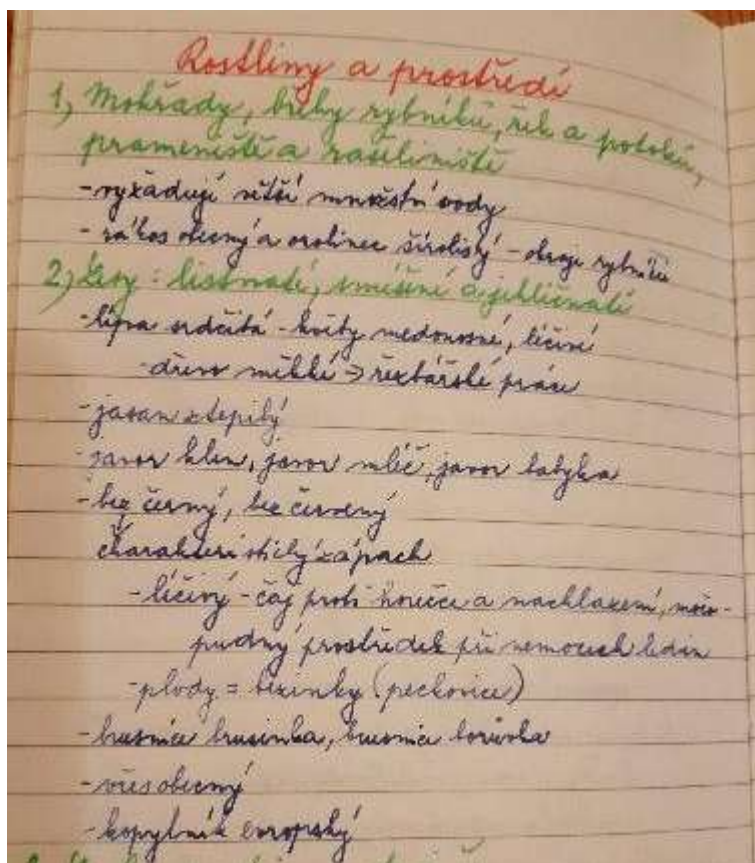 Rostliny a prostředí
1, Mokřady, břehy rybníků, řek a potoků,
prameniště a rašeliniště
- vyžadují větší množství vody
- rákos obecný a orobinec širolistý - okraje rybníků
2, Lesy : listnaté, smíšené a jehličnaté
- lípa srdčitá - květy medonosné, léčivé
- dřevo měkké → řezbářské práce
- jasan ztepilý
- javor klen, javor mléč, javor babyka
- bez černý, bez červený
charakteristický zápach
- léčivý - čaj proti horečce a nachlazení, močo-
pudný prostředek při nemocech ledvin
- plody = bezinky (peckovice)
- brusnice brusinka, brusnice borůvka
- vřes obecný
- kopytník evropský